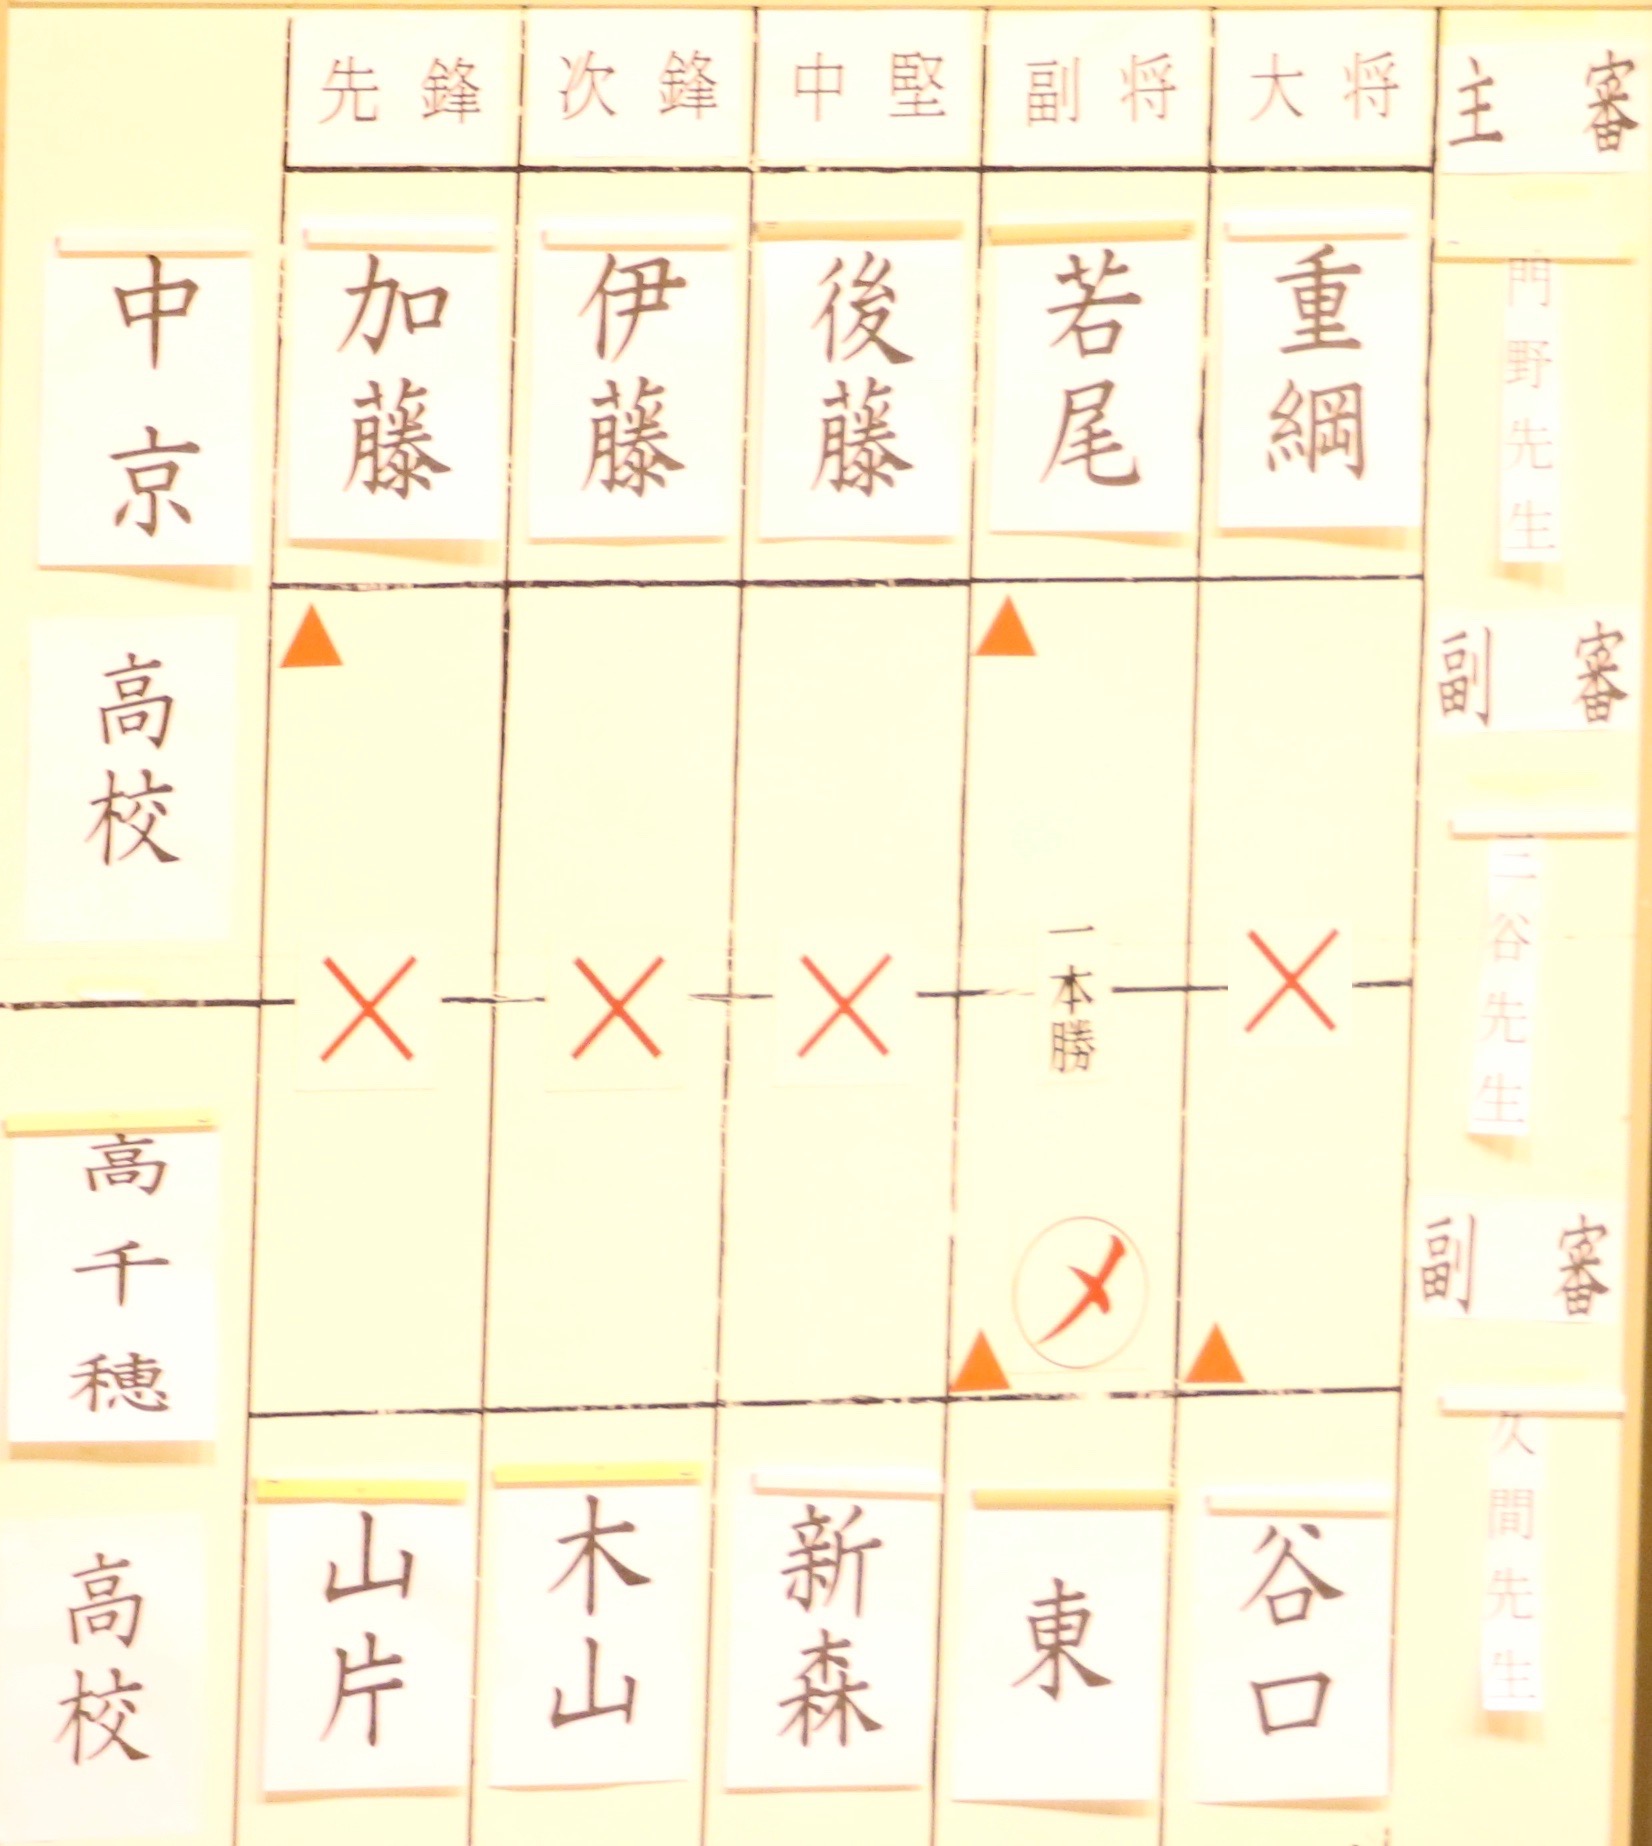 先鋒
次鋒
中堅
副将
大将
主審
中京
高校
加藤
伊藤
後藤
若尾
重綱
門野先生
副審
三谷先生
一本勝
メ
副審
久間先生
高千穂
高校
山片
木山
新森
東
谷口